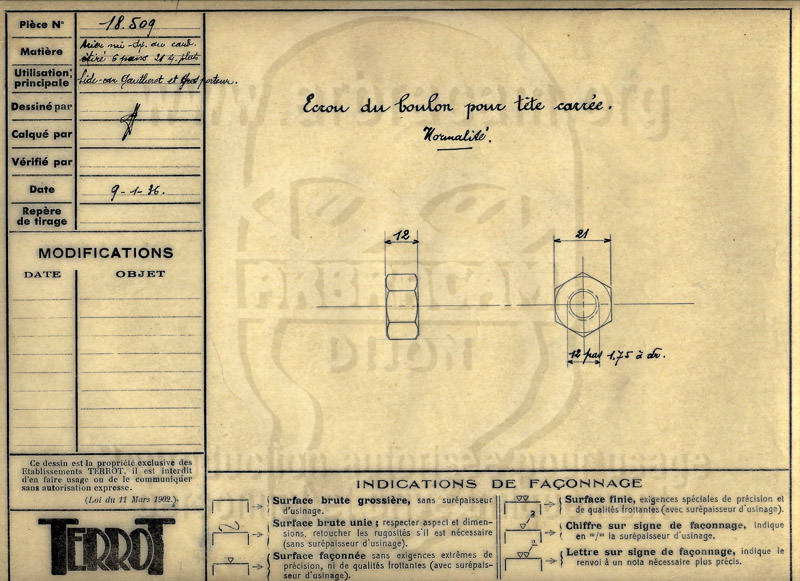 Pièce N° 18.509
Matière Acier mi-dx. au carb.
étiré 6 pans 21 s. plats
Utilisation principale Side-car Gautherot et porteur.
Dessiné par
Calqué par
Vérifié par
Date 9-1-36.
Repère
de tirage
MODIFICATIONS
DATE OBJET
Ce dessin est la propriété exclusive des
Etablissements TERROT, il est interdit
d'en faire usage ou de le communiquer
sans autorisation expresse.
(Loi du 11 Mars 1902.)
TERROT
Ecrou du boulon pour tête carrée.
Normalité.
12
21
12 pas 1,75 à dr.
ARBRACAM
DIJON
INDICATIONS DE FAÇONNAGE
Surface brute grossière, sans surépaisseur
d'usinage.
Surface brute unie ; respecter aspect et dimen-
sions, retoucher les rugosités s'il est nécessaire
(sans surépaisseur d'usinage).
Surface façonnée sans exigences extrêmes de
précision, ni de qualités frottantes (avec surépais-
seur d'usinage).
Surface finie, exigences spéciales de précision et
de qualités frottantes (avec surépaisseur d'usinage).
Chiffre sur signe de faconnage, indique
en m/m la surépaisseur d'usinage.
Lettre sur signe de façonnage, indique le
renvoi à un nota nécessaire plus précis.